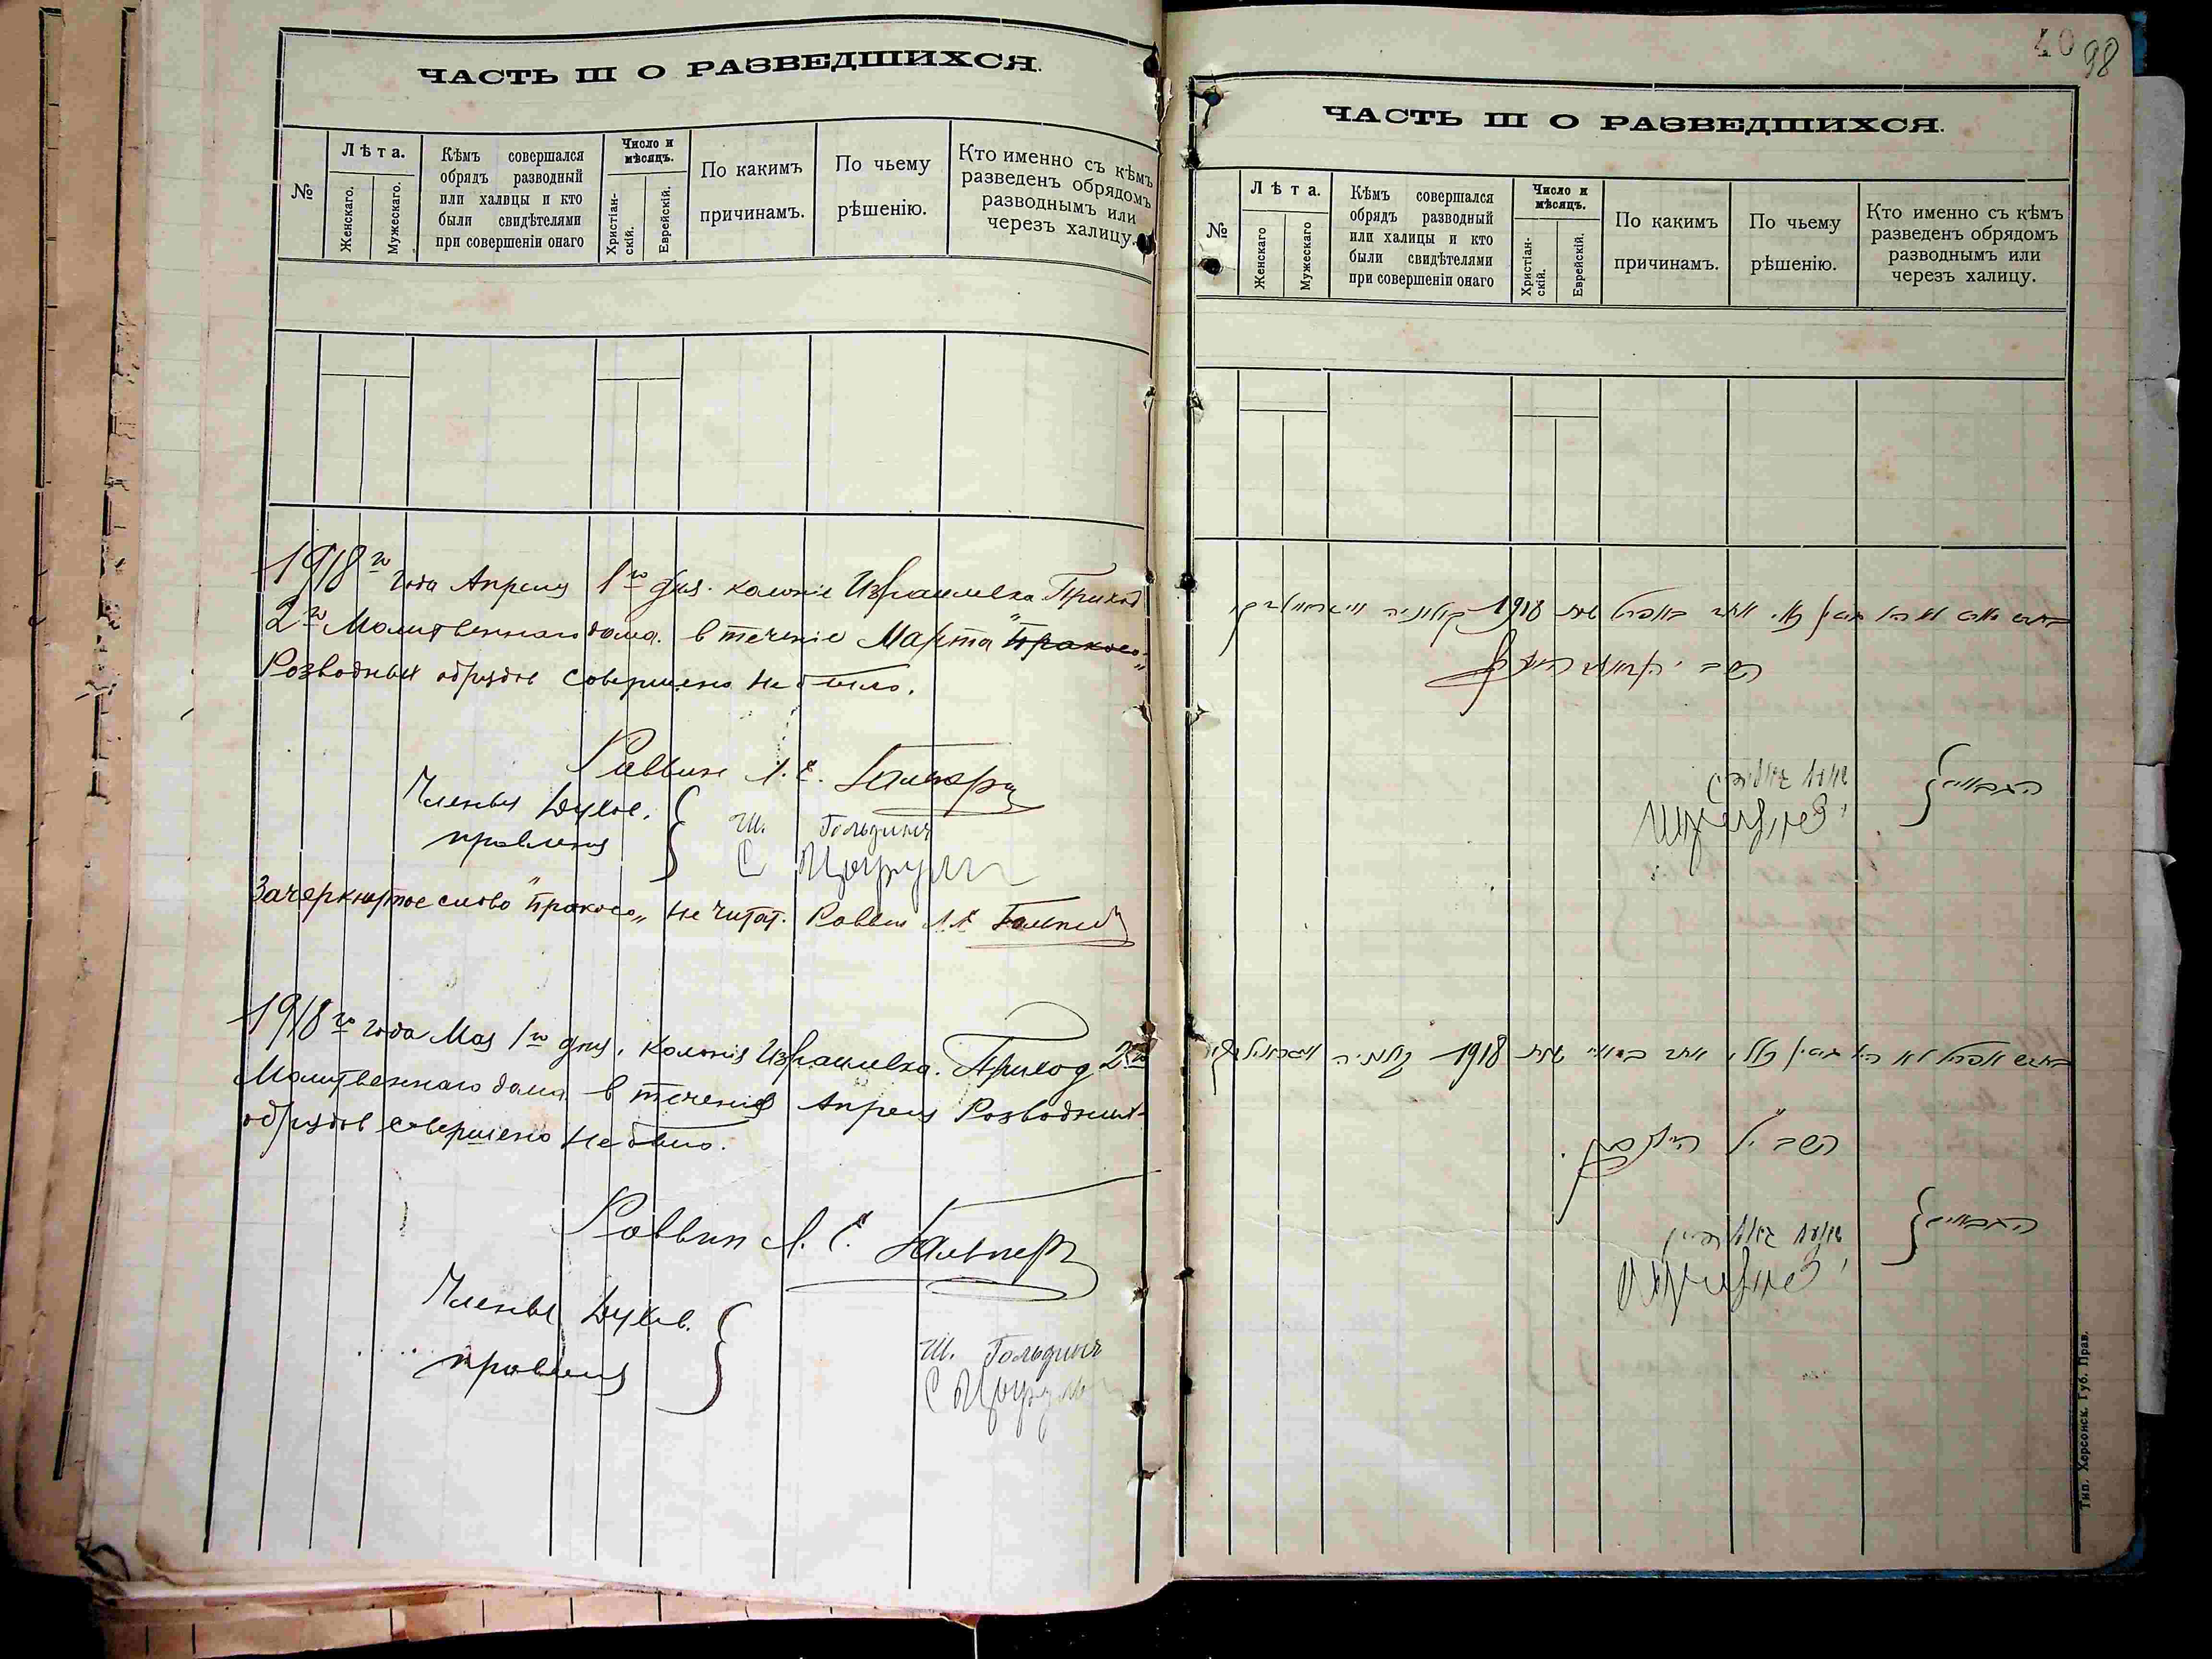 ЧАСТЬ III О РАЗВЕДШИХСЯ.
№
Лѣта.
Женскаго.
Мужескаго.
Кѣмъ совершался
обрядъ разводный
или халицы и кто
были свидѣтелями
при совершеніи онаго
Число и
мѣсяцъ.
Христіан-
скій.
Еврейскій.
По какимъ
причинамъ.
По чьему
рѣшенію.
Кто именно съ кѣмъ
разведенъ обрядомъ
разводнымъ или
через халицу.
1918го года Апреля 1го дня. колоніе Израилевка Приход
2го Молитвеннаго дома. в теченіе Марта
Розводных обрядов совершено не было.
Раввин Л. Е. Гальперн
Члены Духов.
правления
Ш. Гольдинъ
С
Зачеркнутое слово не читат. Раввин
1918го года Мая 1го дня, колонія Израилевка. Приход 2го
Молитвеннаго дома в течение Апреля Розводных
обрядов совершено не было.
Раввин Л. Е. Гальперн
Члены Духов.
правления
Ш. Гольдинъ
С
40 98
ЧАСТЬ III О РАЗВЕДШИХСЯ.
№
Лѣта.
Женскаго
Мужескаго
Кѣмъ совершался
обрядъ разводный
или халицы и кто
были свидѣтелями
при совершеніи онаго
Число и
мѣсяцъ.
Христіан-
скій.
Еврейскій.
По какимъ
причинамъ.
По чьему
рѣшенію.
Кто именно съ кѣмъ
разведенъ обрядомъ
разводнымъ или
черезъ халицу.
בחדש מארט לא היו גטין כלל, אחד באפריל שנת 1918 קאלאניה
הגבאים
בחדש אפריל לא היו גטין כלל, אחד במאי שנת 1918 קאלאניה
הגבאים
Тип. Херсонск. Губ. Прав.